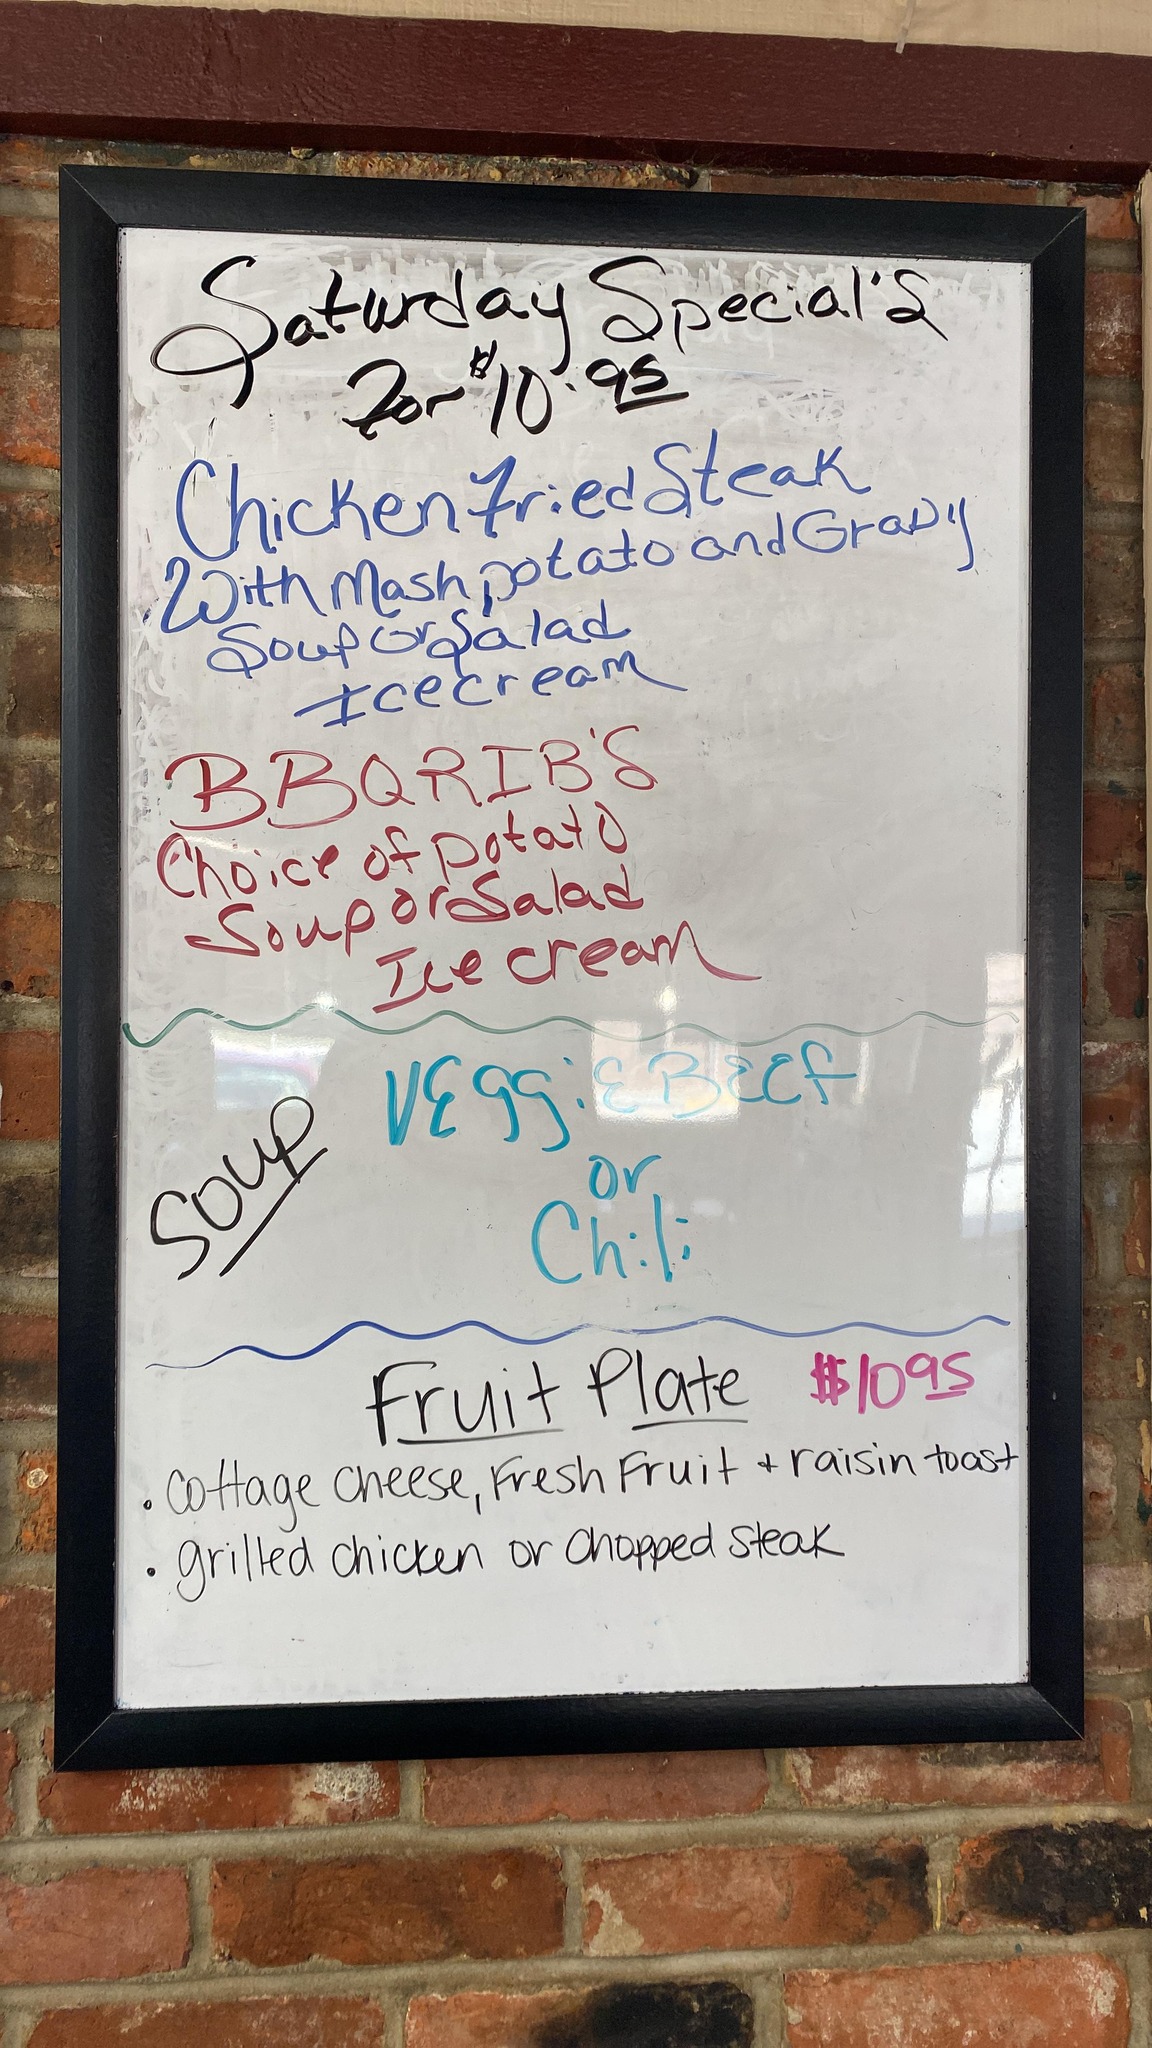 Saturday Special's
For $10.95
Chicken Fried Steak
With Mash potato and Gravy
Soup or Salad
Icecream
BBQ RIB'S
Choice of potato
Soup or Salad
Ice cream
Soup
VEggiE BEEf
or
Chili
Fruit Plate $10 95
• cottage cheese, Fresh Fruit + raisin toast
• grilled chicken or chopped steak